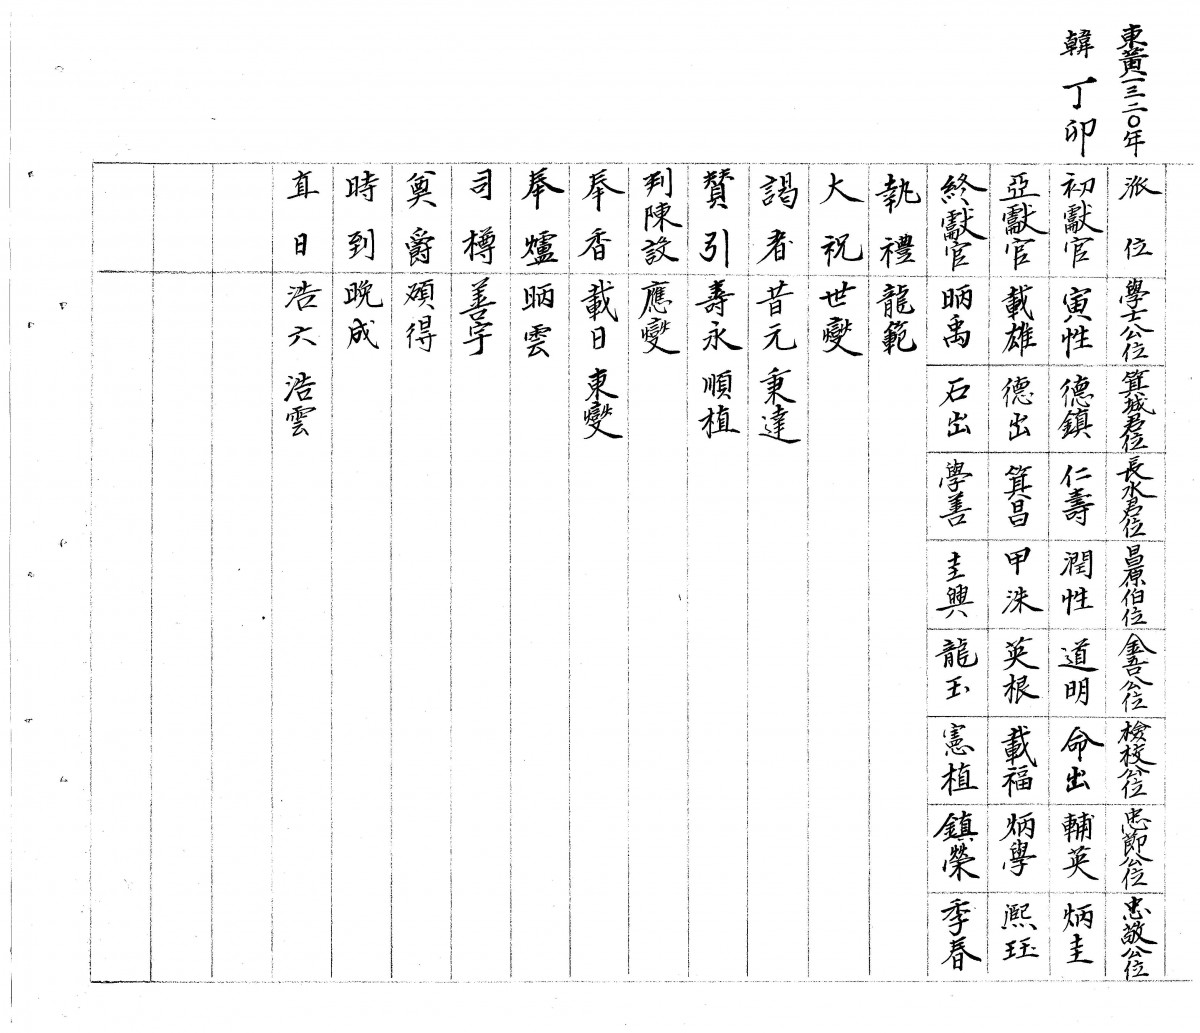 東黃一三二〇年
韓丁卯
派位 學士公位 箕城君位 長水君位 昌原伯位 金吾公位 檢校公位 忠節公位 忠敬公位
初獻官 寅性 德鎮 仁壽 潤性 道明 命出 輔英 炳圭
亞獻官 載雄 德出 箕昌 甲洙 英根 載福 炳學 熙珏
終獻官 昞禹 石出 學善 圭興 龍玉 憲植 鎮榮 季春
執禮 龍範
大祝 世變
謁者 昔元 秉達
贊引 壽永 順植
判陳設 應變
奉香 載日 東變
奉爐 昞雲
司樽 善宇
奠爵 碩得
時到 晩成
直日 浩六 浩雲